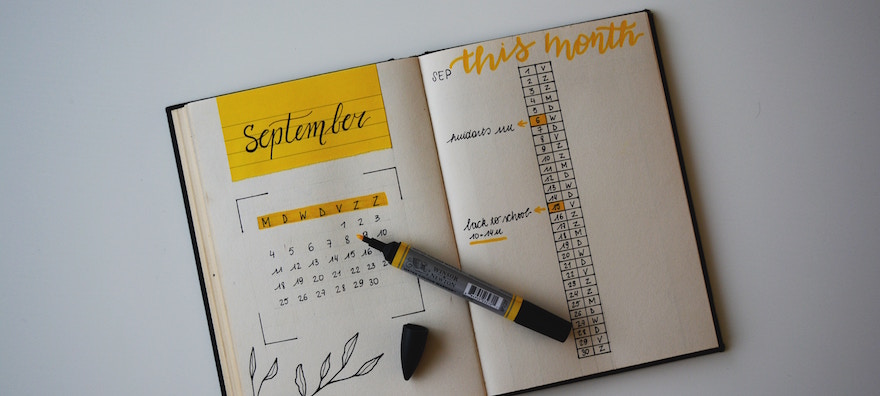 September
M D W D V Z Z
1 2 3
4 5 6 7 8 9 10
11 12 13 14 15 16
18 19 20 21 22 23
25 26 27 28 29 30
this month
SEP
1 V
2 Z
3 Z
4 M
5 D
6 W
7 D
8 V
9 Z
10 Z
11 M
12 D
13 W
14 D
15 V
16 Z
17 Z
18 M
19 D
20 W
21 D
22 V
23 Z
24 Z
25 M
26 D
27 W
28 D
29 V
30 Z
back to school
10-14u